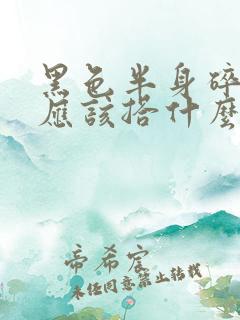 黑色半身碎
应该搭什么
帝希宸
未经同意禁止转载